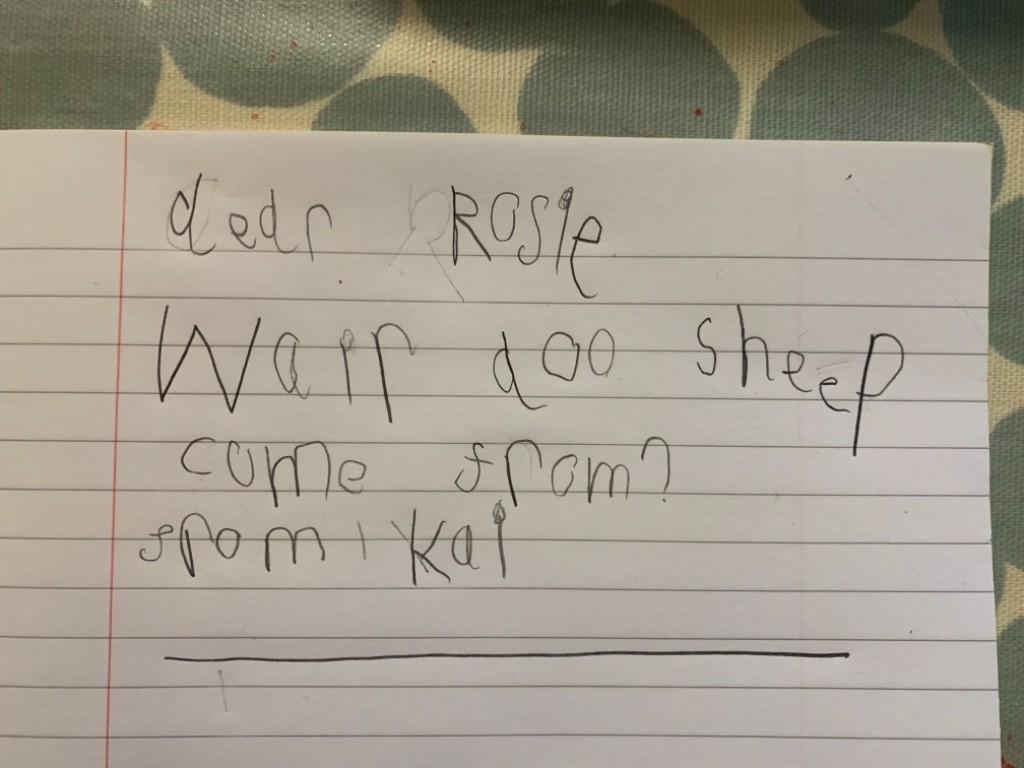 dear Rosie
Warr doo sheep
come from?
from Kai